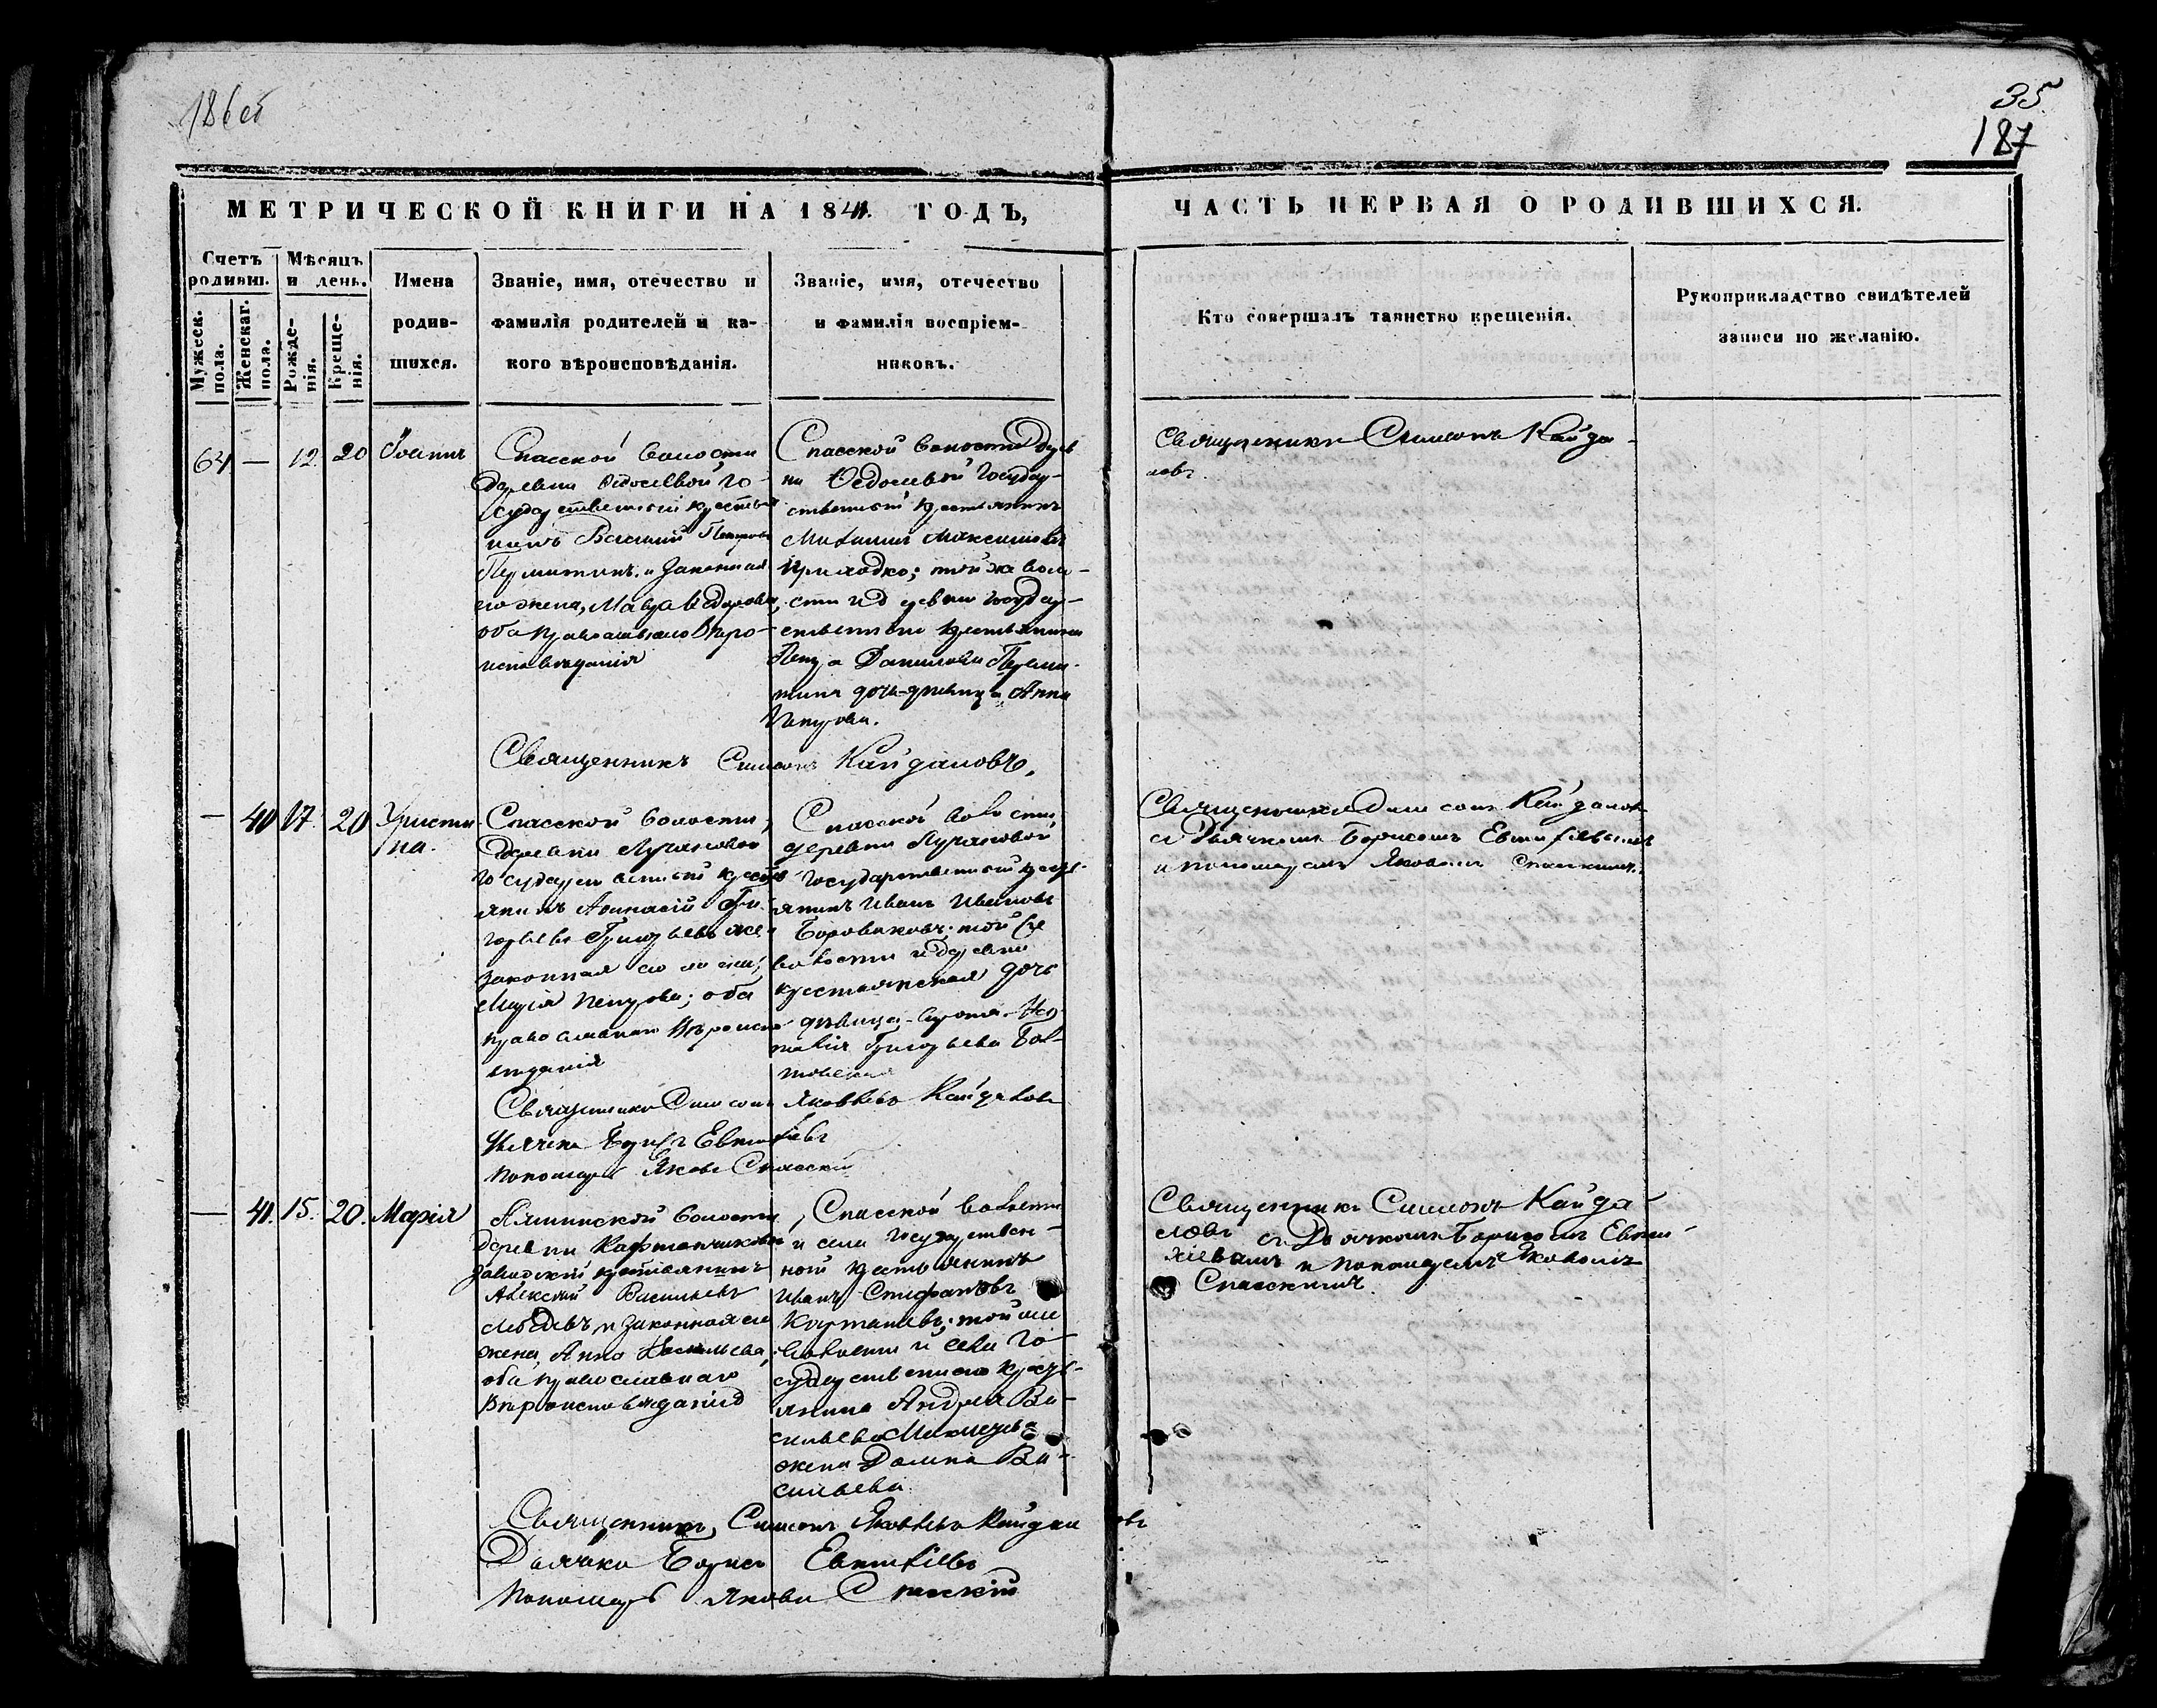 186об
35
187
МЕТРИЧЕСКОЙ КНИГИ НА 1841. ГОДЪ,
ЧАСТЬ ПЕРВАЯ О РОДИВШИХСЯ.
Счетъ родивш.
Мужеск. пола.
Женскаг. пола.
Мѣсяцъ и день.
Рожде-
нія.
Креще-
нія.
Имена
родив-
шихся.
Званіе, имя, отечество и
фамилія родителей и ка-
кого вѣроисповѣданія.
Званіе, имя, отечество
и фамилія воспріем-
никовъ.
Кто совершалъ таинство крещенія.
Рукоприкладство свидѣтелей
записи по желанію.
64 — 12. 20 Іоаннъ
Спасской волости
деревни Ѳедосѣевой го-
сударственный крестья
нинъ Василий Петровъ
Пермитинъ. и законная
его жена, Мавра Ѳедорова,
оба православнаго вѣро-
исповѣданія
Спасской волости дерев
ни Ѳедосѣевой Государ-
ственный крестьянинъ
Михаилъ Максимовъ
Приходко; той же воло-
сти и деревни государ-
ственнаго крестьянина
Петра Данилова Перми-
тина дочь-дѣвица Анна
Петрова.
Священникъ Симеонъ Кайда-
ловъ.
Священникъ Симеонъ Кайдаловъ.
— 40 17. 20 Христи
на.
Спасской волости,
деревни Лучановой
государственный кресть
янинъ Аѳанасій Гри-
горьевъ Григорьевъ же и
законная его жена,
Марія Петрова; оба
православнаго вѣроиспо
вѣданія
Спасской волости
деревни Лучановой
государственный кресть-
янинъ Иванъ Ивановъ
Боровиковъ; той же
волости и деревни
крестьянская дочь
дѣвица-сирота На-
талія Григорьева
Священникъ Симеонъ Кайдалов
съ Дьячкомъ Борисомъ Евтихіевымъ
и пономаремъ Яковомъ Спасскимъ.
Священникъ Симеонъ Яковлевъ Кайдалов
Дьячекъ Борисъ Евтихіевъ
Пономарь Яковъ Спасскій
— 41. 15. 20. Марія
волости
деревни Кафтанчиковой
заводскій крестьянинъ
Алексѣй Васильевъ
и законная его
жена, Анна Васильева,
оба православнаго
вѣроисповѣданія
Спасской волости
и села Государствен-
ной крестьянинъ
Иванъ Стефановъ
той же
волости и села го-
сударственнаго кресть-
янина Андрея Ва-
сильева
жена Домна Ва-
сильева.
Священникъ Симеонъ Кайда
ловъ съ Дьячкомъ Борисомъ Евти-
хіевымъ и пономаремъ Яковомъ
Спасскимъ.
Священникъ, Симеонъ Яковлевъ Кайдаловъ
Дьячекъ Борисъ Евтихіевъ
Пономарь Яковъ Спасскій